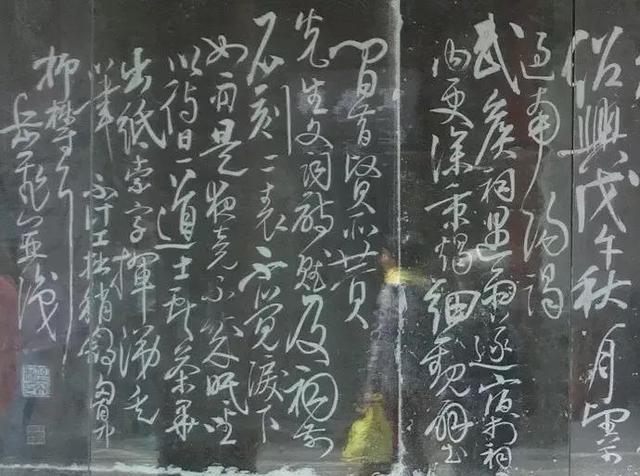 紹興戊午秋八月望前
過南陽謁
武侯祠遇雨遂宿於祠
內更深秉燭細觀壁
間昔賢所贊
先生文詞詩賦及祠前
石刻二表不覺淚下
如雨是夜竟不成眠坐
以待旦道士獻茶畢
出紙索字揮涕走
筆不計工拙稍舒胸中
抑鬱耳
岳飛並識